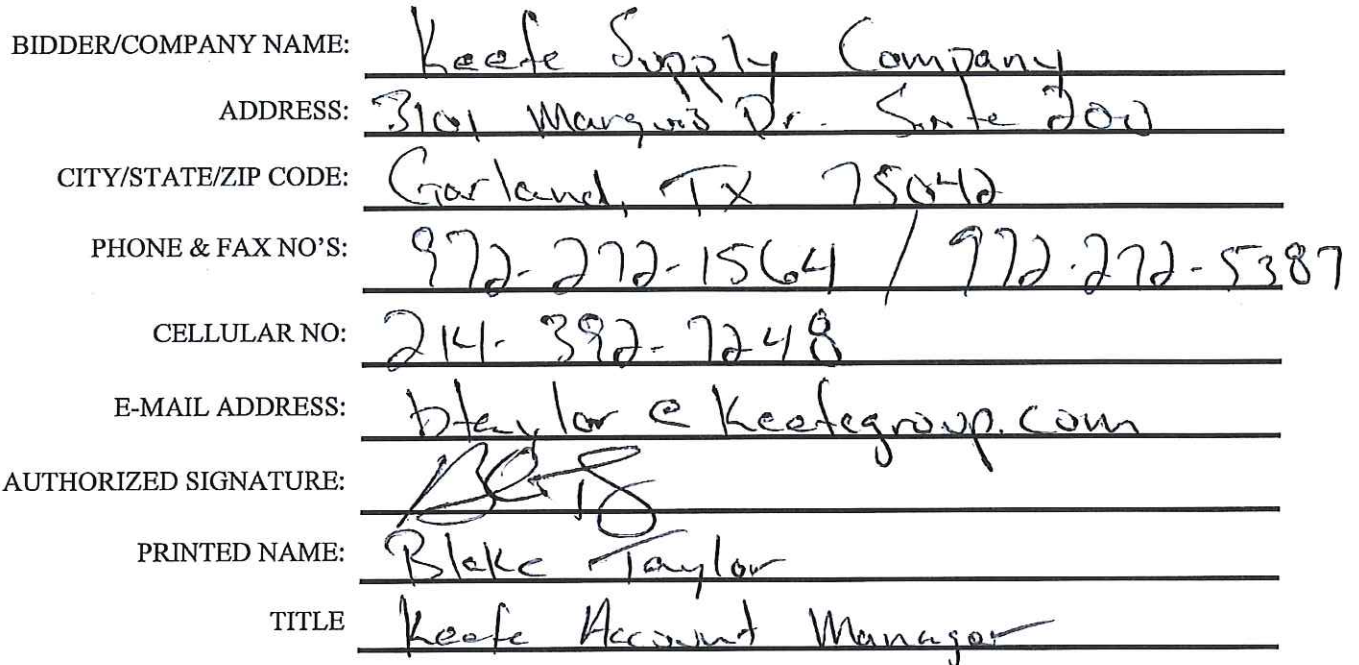 BIDDER/COMPANY NAME: Keefe Supply Company
ADDRESS: 3101 Marquis Dr. Suite 200
CITY/STATE/ZIP CODE: Garland, TX 75042
PHONE & FAX NO'S: 972-272-1564 / 972-272-5387
CELLULAR NO: 214-392-7248
E-MAIL ADDRESS: btaylor@keefegroup.com
AUTHORIZED SIGNATURE:
PRINTED NAME: Blake Taylor
TITLE Keefe Account Manager